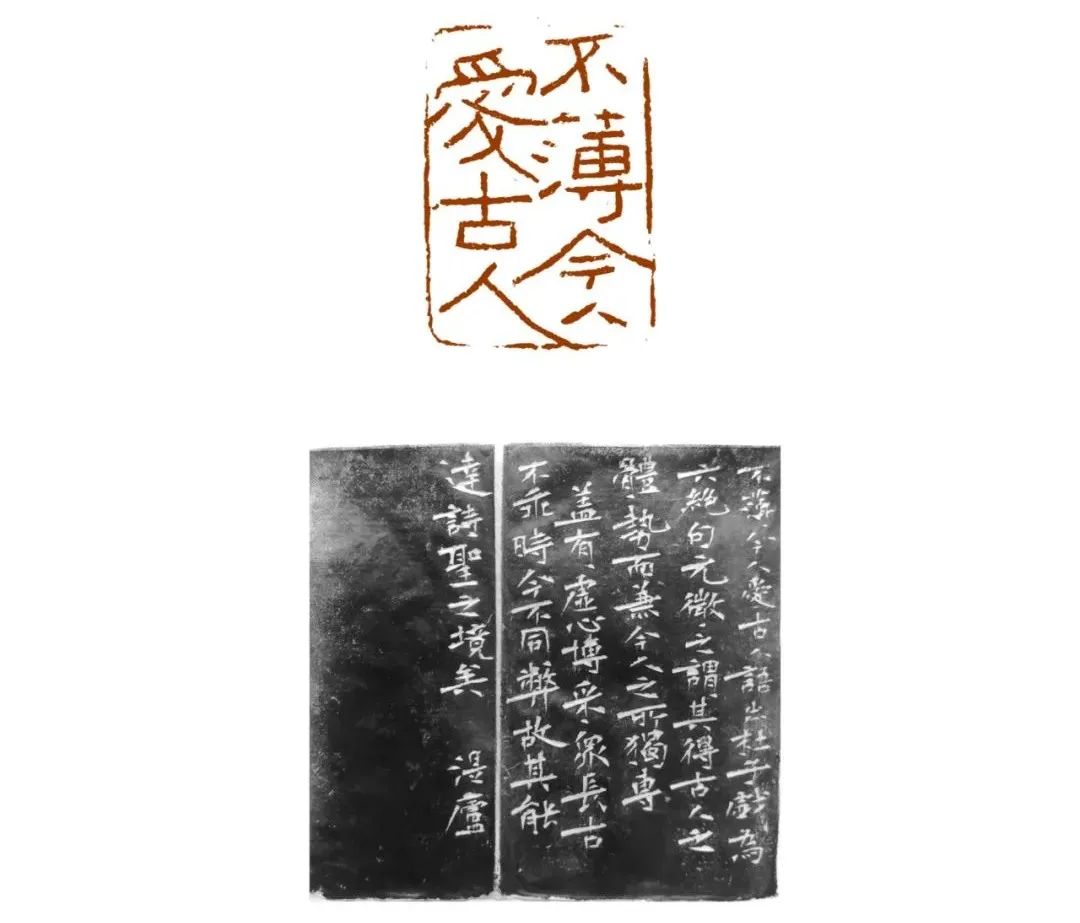 不薄今人
愛古人
不薄今人愛古人語出杜子戲為
六絕句元微之謂其得古人之
體勢而兼今人之所獨專
盖有虛心博采眾長古
不乖時今不同弊故其能
達詩聖之境矣 湜廬